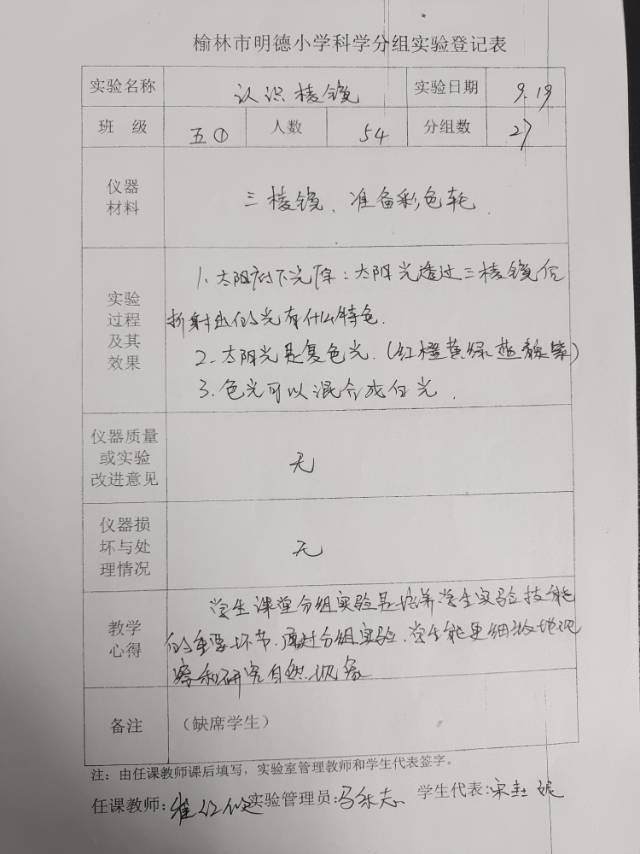 榆林市明德小学科学分组实验登记表
实验名称 认识棱镜 实验日期 9.19
班 级 五① 人数 54 分组数 27
仪器
材料
三棱镜、准备彩色轮
实验
过程
及其
效果
1、太阳的下光屏：太阳光透过三棱镜后
折射出的光有什么特色.
2、太阳光是复色光.（红橙黄绿蓝靛紫）
3、色光可以混合成白光.
仪器质量
或实验
改进意见
无
仪器损
坏与处
理情况
无
教学
心得
学生课堂分组实验是培养学生实验技能
的重要环节.通过分组实验.学生能更细致地观
察和研究自然现象
备注 （缺席学生）
注：由任课教师课后填写，实验室管理教师和学生代表签字。
任课教师： 实验管理员: 学生代表: